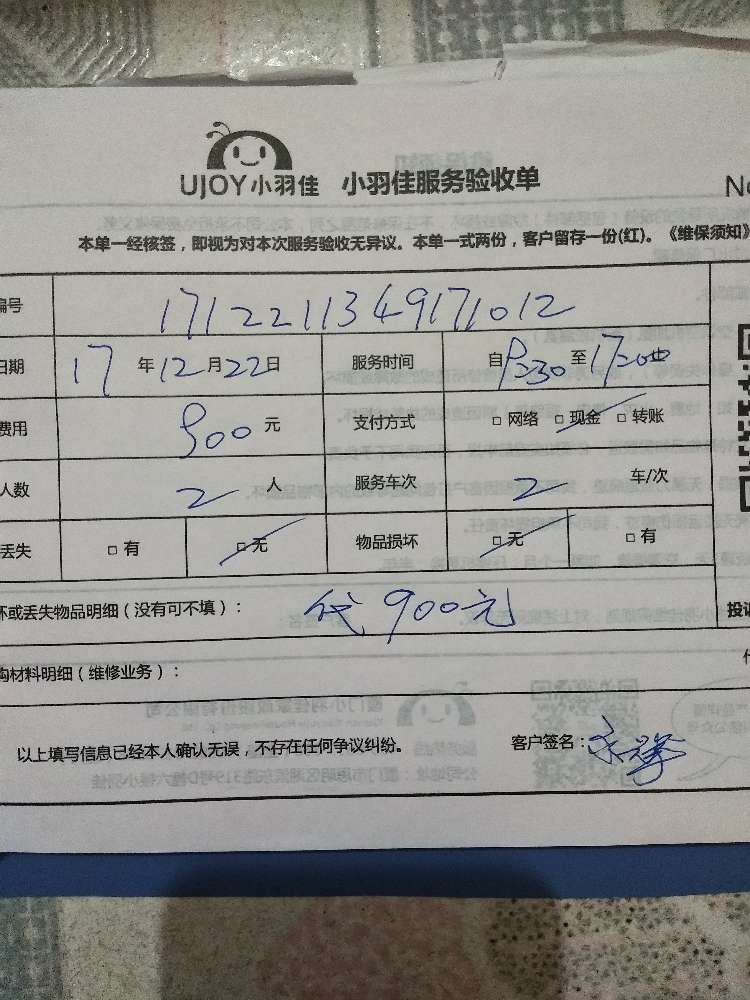 UJOY小羽佳 小羽佳服务验收单
No
本单一经核签，即视为对本次服务验收无异议。本单一式两份，客户留存一份(红)。《维保须知》
编号 1712211349171012
日期 17 年 12 月 22 日 服务时间 自 9:30 至 17:00
费用 900 元 支付方式 □ 网络 □ 现金 □ 转账
人数 2 人 服务车次 2 车/次
丢失 □ 有 □ 无 物品损坏 □ 无 □ 有
坏或丢失物品明细（没有可不填）： 代 900元
投诉
购材料明细（维修业务）：
以上填写信息已经本人确认无误，不存在任何争议纠纷。 客户签名：